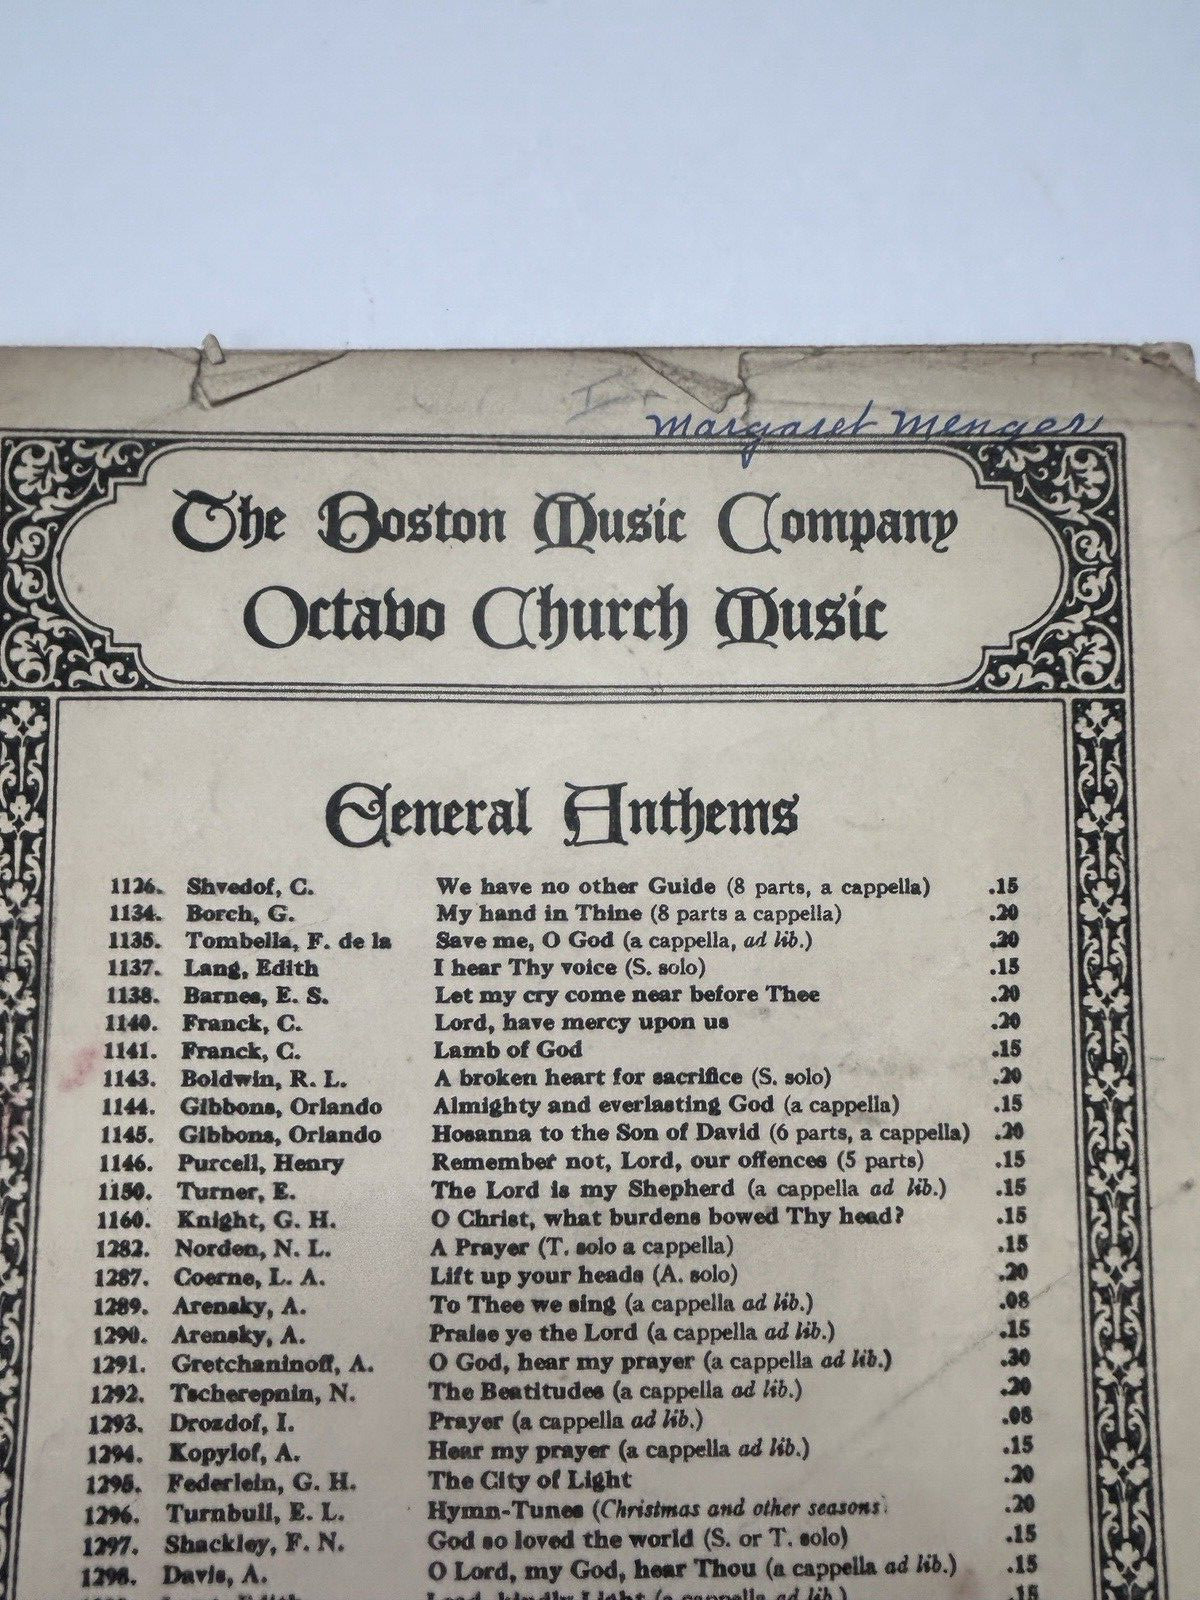 Margaret Menger
The Boston Music Company
Octavo Church Music
General Anthems
1126. Shvedof, C. We have no other Guide (8 parts, a cappella) .15
1134. Borch, G. My hand in Thine (8 parts a cappella) .20
1135. Tombella, F. de la Save me, O God (a cappella, ad lib.) .20
1137. Lang, Edith I hear Thy voice (S. solo) .15
1138. Barnes, E. S. Let my cry come near before Thee .20
1140. Franck, C. Lord, have mercy upon us .20
1141. Franck, C. Lamb of God .15
1143. Boldwin, R. L. A broken heart for sacrifice (S. solo) .20
1144. Gibbons, Orlando Almighty and everlasting God (a cappella) .15
1145. Gibbons, Orlando Hosanna to the Son of David (6 parts, a cappella) .20
1146. Purcell, Henry Remember not, Lord, our offences (5 parts) .15
1150. Turner, E. The Lord is my Shepherd (a cappella ad lib.) .15
1160. Knight, G. H. O Christ, what burdens bowed Thy head? .15
1282. Norden, N. L. A Prayer (T. solo a cappella) .15
1287. Coerne, L. A. Lift up your heads (A. solo) .20
1289. Arensky, A. To Thee we sing (a cappella ad lib.) .08
1290. Arensky, A. Praise ye the Lord (a cappella ad lib.) .15
1291. Gretchaninoff, A. O God, hear my prayer (a cappella ad lib.) .30
1292. Tscherepnin, N. The Beatitudes (a cappella ad lib.) .20
1293. Drozdof, I. Prayer (a cappella ad lib.) .08
1294. Kopylof, A. Hear my prayer (a cappella ad lib.) .15
1295. Federlein, G. H. The City of Light .20
1296. Turnbull, E. L. Hymn-Tunes (Christmas and other seasons) .20
1297. Shackley, F. N. God so loved the world (S. or T. solo) .15
1298. Davis, A. O Lord, my God, hear Thou (a cappella ad lib.) .15
Lead, kindly Light (a cappella ad lib.) .15